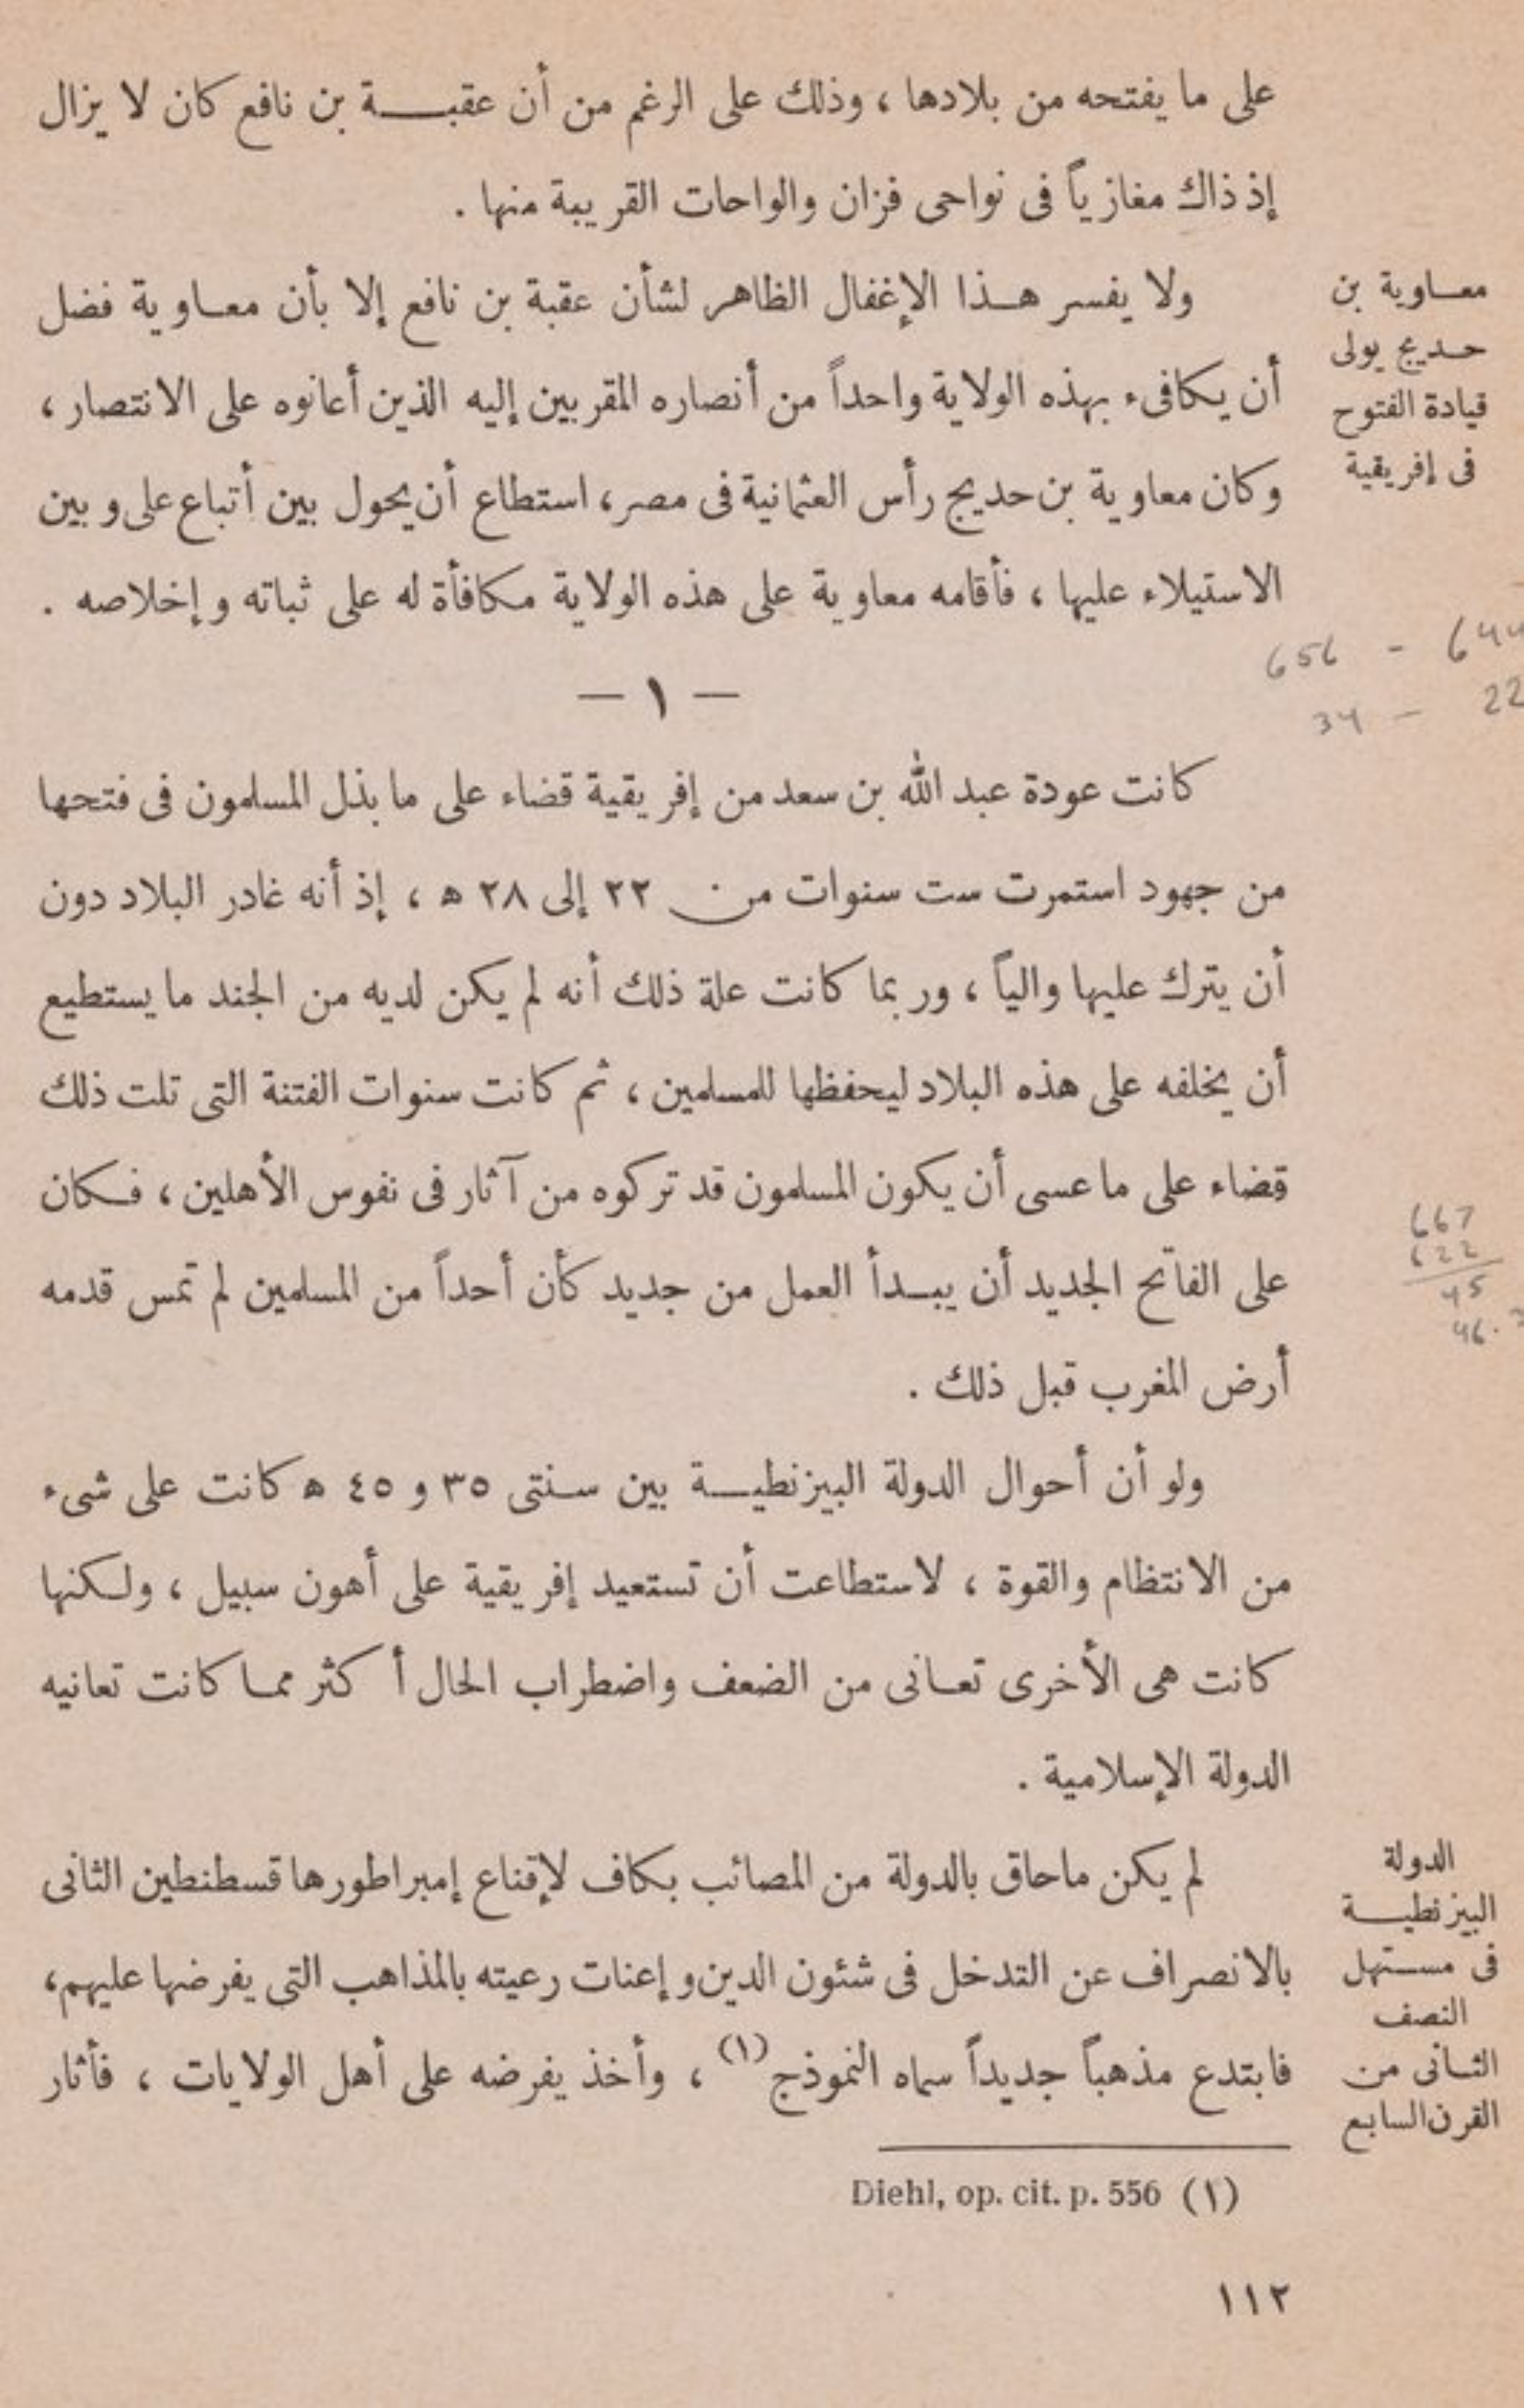 على ما يفتحه من بلادها ، وذلك على الرغم من أن عقبة بن نافع كان لا يزال
إذ ذاك مغازياً فى نواحى فزان والواحات القريبة منها .
معاوية بن
حديج يولى
قيادة الفتوح
فى إفريقية
ولا يفسر هذا الإغفال الظاهر لشأن عقبة بن نافع إلا بأن معاوية فضل
أن يكافىء بهذه الولاية واحداً من أنصاره المقربين إليه الذين أعانوه على الانتصار ،
وكان معاوية بن حديج رأس العثمانية فى مصر ، استطاع أن يحول بين أتباع على وبين
الاستيلاء عليها ، فأقامه معاوية على هذه الولاية مكافأة له على ثباته وإخلاصه .
656 - 644
34 - 22
— ١ —
كانت عودة عبد الله بن سعد من إفريقية قضاء على ما بذل المسلمون فى فتحها
من جهود استمرت ست سنوات من ٢٢ إلى ٢٨ ھ ، إذ أنه غادر البلاد دون
أن يترك عليها والياً ، وربما كانت علة ذلك أنه لم يكن لديه من الجند ما يستطيع
أن يخلفه على هذه البلاد ليحفظها للمسلمين ، ثم كانت سنوات الفتنة التى تلت ذلك
قضاء على ما عسى أن يكون المسلمون قد تركوه من آثار فى نفوس الأهلين ، فكان
على الفاتح الجديد أن يبدأ العمل من جديد كأن أحداً من المسلمين لم تمس قدمه
أرض المغرب قبل ذلك .
667
622
45
46.
ولو أن أحوال الدولة البيزنطية بين سنتى ٣٥ و ٤٥ ھ كانت على شىء
من الانتظام والقوة ، لاستطاعت أن تستعيد إفريقية على أهون سبيل ، ولكنها
كانت هى الأخرى تعانى من الضعف واضطراب الحال أكثر مما كانت تعانيه
الدولة الإسلامية .
الدولة
البيزنطية
فى مستهل
النصف
الثانى من
القرن السابع
لم يكن ماحاق بالدولة من المصائب بكاف لإقناع إمبراطورها قسطنطين الثانى
بالانصراف عن التدخل فى شئون الدين وإعنات رعيته بالمذاهب التى يفرضها عليهم،
فابتدع مذهباً جديداً سماه النموذج (١) ، وأخذ يفرضه على أهل الولايات ، فأثار
(١) Diehl, op. cit. p. 556
١١٢